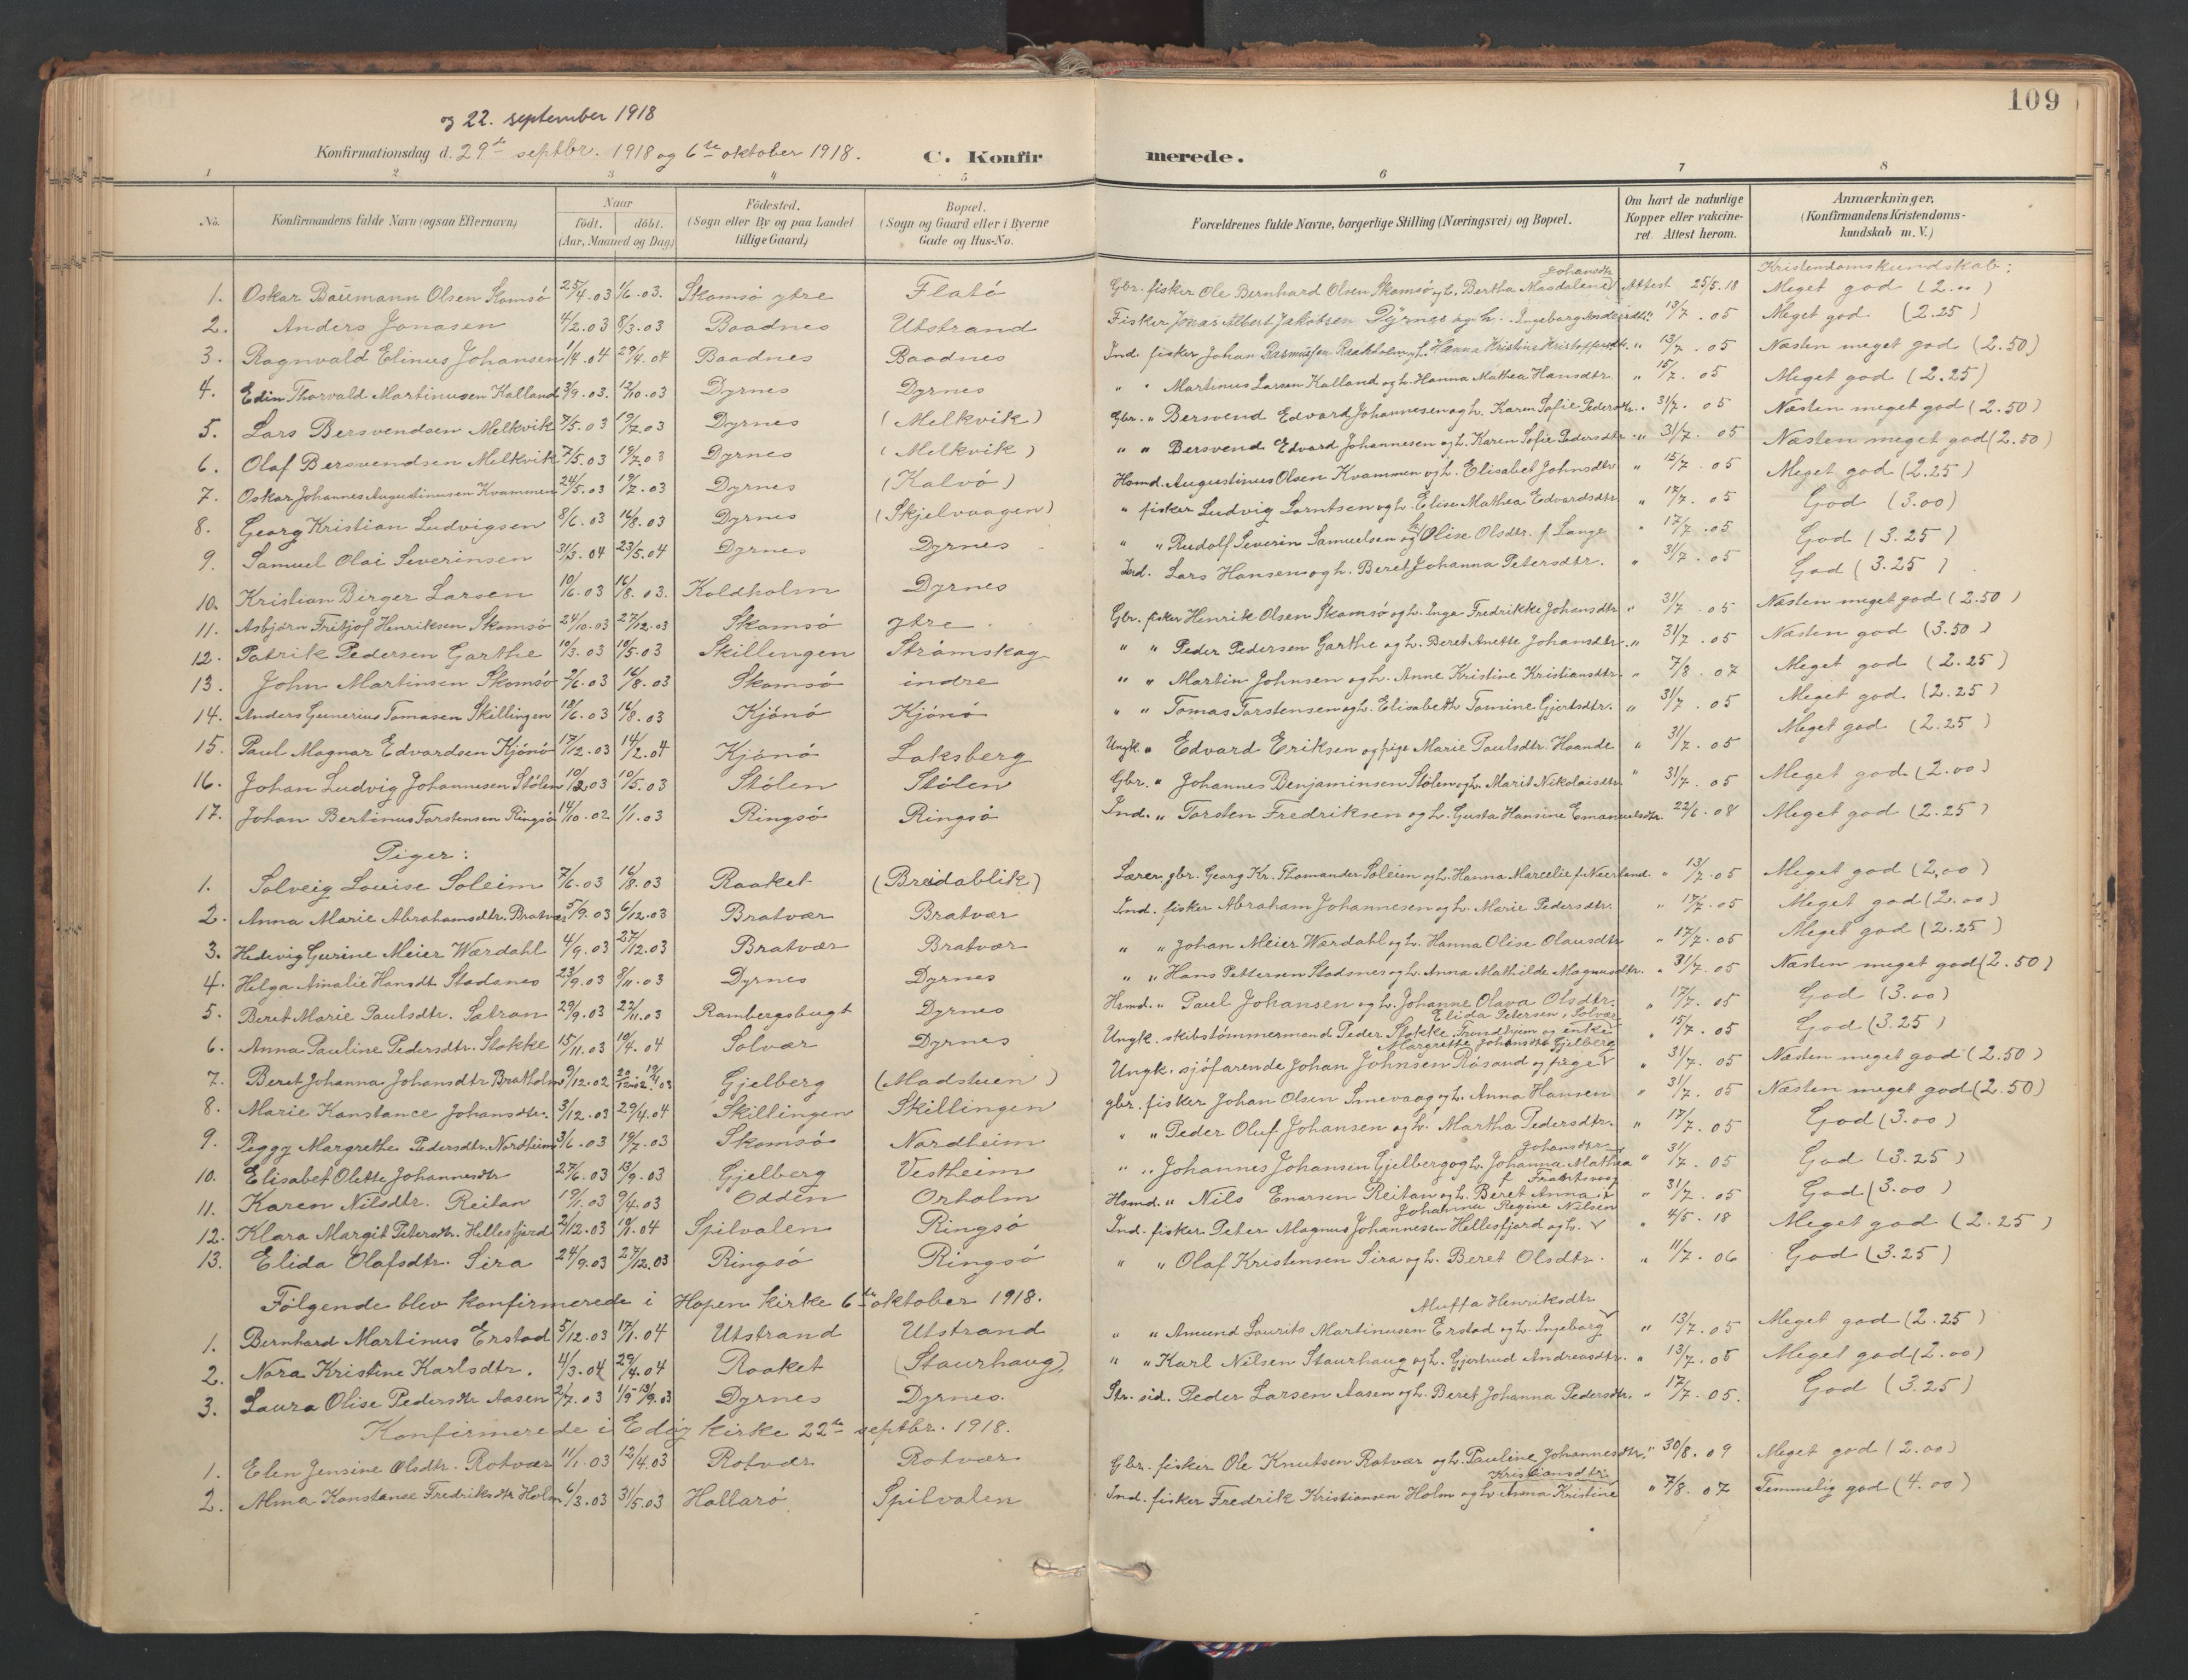 109
og 22. september 1918
Konfirmationsdag d. 29de septbr. 1918 og 6te oktober 1918.
C. Konfirmerede.
1 2 3 4 5 6 7 8
No. Konfirmandens fulde Navn (ogsaa Efternavn) Naar födt. döbt. (Aar, Maaned og Dag) Födested. (Sogn eller By og paa Landet tillige Gaard) Bopæl. (Sogn og Gaard eller i Byerne Gade og Hus-No. Forældrenes fulde Navne, borgerlige Stilling (Næringsvei) og Bopæl. Om havt de naturlige Kopper eller vakcineret. Attest herom. Anmærkninger, (Konfirmandens Kristendomskundskab m. V.)
Kristendomskundskab:
1. Oskar Baumann Olsen Skomsö 25/4.03 1/6.03. Skomsö ytre Flatö Gbr. fisker Ole Bernhard Olsen Skomsö og h. Bertha Magdalene Johansdtr Attest 25/5.18 Meget god (2.00)
2. Anders Jonasen 4/2.03 8/3.03 Baadnes Utstrand Fisker Jonas Albert Jakobsen Dyrnes og h. Ingeborg Andersdtr " 13/7.05 Meget god (2.25)
3. Ragnvald Elinus Johansen 1/4.04 29/4.04 Baadnes Baadnes Ind. fisker Johan Rasmussen og h. Hanna Kristine Kristoffersdtr. " 13/7.05 Næsten meget god (2.50)
4. Edin Thorvald Martinusen Kalland 3/9.03. 12/10.03 Dyrnes Dyrnes " " Martinus Larsen Kalland og h. Hanna Mathea Hansdtr. " 15/7.05 Meget god (2.25)
5. Lars Bersvendsen Melkvik 7/5.03 19/7.03 Dyrnes (Melkvik) Gbr. " Bersvend Edvard Johannesen og h. Karen Sofie Pedersdtr. " 31/7.05 Næsten meget god (2.50)
6. Olaf Bersvendsen Melkvik 7/5.03 19/7.03 Dyrnes (Melkvik) " " Bersvend Edvard Johannesen og h. Karen Sofie Pedersdtr " 31/7.05 Næsten meget god (2.50)
7. Oskar Johannes Augustinusen Kvammen 24/5.03 19/7.03 Dyrnes (Kalvö) Hsmd. Augustinus Olsen Kvammen og h. Elisabet Johnsdtr " 15/7.05 Meget god (2.25)
8. Georg Kristian Ludvigsen 8/6.03 16/8.03 Dyrnes (Skjelvaagen) " fisker Ludvig Larntsen og h. Elise Mathea Edvardsdtr " 17/7.05 God (3.00)
9. Samuel Olai Severinsen 31/3.04 23/5.04 Dyrnes Dyrnes " " Rudolf Severin Samuelsen og h. Olise Olsdtr. f. Lange " 17/7.05 God (3.25)
10. Kristian Birger Larsen 10/6.03 16/8.03. Koldholm Dyrnes Ind. Lars Hansen og h. Beret Johanna Petersdtr. " 31/7.05 God (3.25)
11. Asbjörn Fritjof Henriksen Skomsö 24/10.03 27/12.03 Skomsö ytre Gbr. fisker Henrik Olsen Skomsö og h. Inga Fredrikke Johansdtr " 31/7.05 Næsten meget god (2.50)
12. Patrik Pedersen Garthe 10/3.03 10/5.03 Skillingen Strömskag " " Peder Pedersen Garthe og h. Beret Anette Johansdtr. " 31/7.05 Næsten god (3.50)
13. John Martinsen Skomsö 2/6.03 16/8.03 Skomsö indre " " Martin Johnsen og h. Anne Kristine Kristiansdtr. " 7/8.07 Meget god (2.25)
14. Anders Gunerius Tomasen Skillingen 18/6.03 16/8.03 Kjönö Kjönö " " Tomas Torstensen og h. Elisabeth Tomine Gjertsdtr. " 31/7.05 Meget god (2.25)
15. Paul Magnar Edvardsen Kjönö 17/12.03 14/2.04 Kjönö Laksberg Ungk. " Edvard Eriksen og pige Marie Paulsdtr. Haande " 31/7.05 Meget god (2.25)
16. Johan Ludvig Johannesen Stölen 10/2.03 10/5.03 Stölen Stölen Gbr. " Johannes Benjaminsen Stölen og h. Marit Nikolaisdtr. " 31/7.05 Meget god (2.00)
17. Johan Bertinus Torstensen Ringsö 14/10.02 1/1.03 Ringsö Ringsö Ind. " Torsten Fredriksen og h. Gusta Hansine Emanuelsdtr. 22/6.08 Meget god (2.25)
Piger:
1. Solveig Louise Soleim 7/6.03 16/8.03 Raaket (Breidablik) Lærer, gbr. Georg Kr. Thomander Soleim og h. Hanna Marcelie f. Neerland. " 13/7.05 Meget god (2,00)
2. Anna Marie Abrahamsdtr. Bratvær 5/9.03 6/12.03 Bratvær Bratvær Ind. fisker Abraham Johannesen og h. Marie Pedersdtr. " 17/7.05 Meget god (2.00)
3. Hedevig Gurine Meier Wærdahl 4/9.03 27/12.03 Bratvær Bratvær " " Johan Meier Wærdahl og h. Hanna Olise Olausdtr " 17/7.05 Meget god (2.25)
4. Helga Amalie Hansdtr Stadsnes 23/9.03 8/11.03 Dyrnes Dyrnes " " Hans Pettersen Stadsnes og h. Anna Mathilde Magnusdtr. " 31/7.05 Næsten meget god (2.50)
5. Beret Marie Paulsdtr. Sætran 29/9.03 22/11.03 Rambergsbugt Dyrnes Hsmd. " Paul Johansen og h. Johanne Olava Olsdtr. " 17/7.05 God (3.00)
6. Anna Pauline Pedersdtr. Stokke 15/11.03 10/4.04 Solvær Dyrnes Ungk. skibstømmermand Peder Stokke, Trondhjem og enke Elida Petersen, Solvær " 15/7.05 God (3.25)
7. Beret Johanna Johansdtr Bratholm 9/12.02 Gjelberg (Madstuen) Ungk. sjöfarende Johan Johnsen Rösand og pige Margrethe Johansdtr Gjelberg " 31/7.05 Næsten meget god (2.50)
8. Marie Konstance Johansdtr. 3/12.03 29/4.04 Skillingen Skillingen gbr. fisker Johan Olsen Smevaag og h. Anna Hansen " 31/7.05 Næsten meget god (2.50)
9. Peggy Margrethe Pedersdtr. Nordheim 3/6.03 19/7.03 Skomsö Nordheim " " Peder Oluf Johansen og h. Martha Pedersdtr. " 17/7.05 God (3.00)
10. Elisabet Olette Johannesdtr 27/6.03 13/9.03 Gjelberg Vestheim " " Johannes Johansen Gjelberg og h. Johanna Mathea Johansdtr. " 31/7.05 God (3.25)
11. Karen Nilsdtr. Reitan 19/1.03 9/4.03 Odden Orholm Hsmd. " Nils Enarsen Reitan og h. Beret Anna " 31/7.05 God (3.00)
12. Klara Margit Petersdtr. Hellesfjord 2/12.03 10/1.04 Spilvalen Ringsö Ind. fisker Peter Magnus Johannesen Hellesfjord og h. Johanna Regine Nilsen " 4/5.18 Meget god (2.25)
13. Elida Olafsdtr. Sira 24/9.03 27/12.03 Ringsö Ringsö " " Olaf Kristensen Sira og h. Beret Olsdtr. " 11/7.06 God (3.25)
Følgende blev konfirmerede i Hopen kirke 6te oktober 1918.
1. Bernhard Martinus Erstad 5/12.03 17/1.04 Utstrand Utstrand " " Amund Laurits Martinusen Erstad og h. Ingeborg Muffa Henriksdtr " 13/7.05 Meget god (2.25)
2. Nora Kristine Karlsdtr. 4/3.04 29/4.04 Raaket (Staurhaug) " " Karl Nilsen Staurhaug og h. Gjertrud Andreasdtr. " 13/7.05 Meget god (2.00)
3. Laura Olise Pedersdtr Aasen 2/7.03 13/9.03 Dyrnes Dyrnes. Str. sid. Peder Larsen Aasen og h. Beret Johanna Pedersdtr. " 17/7.05. God (3.25)
Konfirmerede i Edöy kirke 22de septbr. 1918.
1. Elen Jensine Olsdtr. Rotvær 11/1.03 12/4.03 Rotvær Rotvær Gbr. fisker Ole Knutsen Rotvær og h. Pauline Johannesdtr. " 30/8.09 Meget god (2.00)
2. Alma Konstanse Fredriksdtr Holm 6/3.03 31/5.03 Hallarö Spilvalen Ind. fisker Fredrik Kristiansen Holm og h. Anna Kristine Kristiansdtr. " 7/8.07 Temmelig god (4.00)